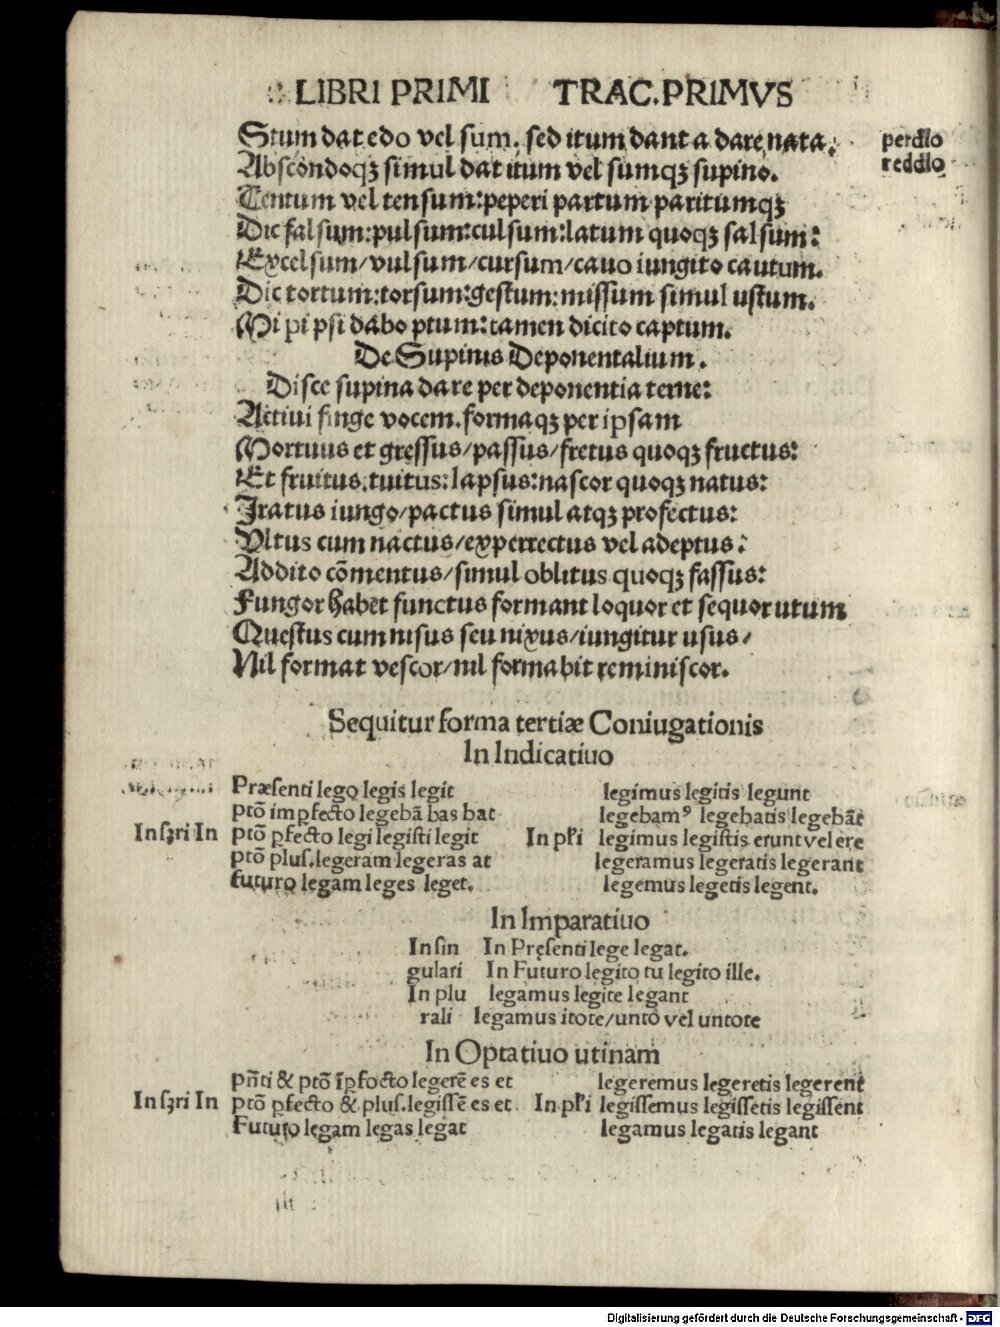 LIBRI PRIMI TRAC.PRIMVS
Stum dat edo vel sum. sed itum dant a dare nata.
perdĺo
Abscondoqꝫ simul dat itum vel sumqꝫ supino.
reddĺo
Tentum vel tensum:peperi partum paritumqꝫ
Dic falsum:pulsum:culsum:latum quoqꝫ salsum:
Excelsum/vulsum/cursum/cavo iungito cautum.
Dic tortum:torsum:gestum:missum simul ustum.
Mi pi psi dabo ptum:tamen dicito captum.
De Supinis Deponentalium.
Disce supina dare per deponentia terne:
Activi finge vocem.formaqꝫ per ipsam
Mortuus et gressus/passus/fretus quoqꝫ fructus:
Et fruitus.tuitus:lapsus:nascor quoqꝫ natus:
Iratus iungo/pactus simul atqꝫ profectus:
Vltus cum nactus/experrectus vel adeptus:
Addito cōmentus/simul oblitus quoqꝫ fassus:
Fungor habet functus formant loquor et sequor utum
Questus cum nisus seu nixus/iungitur usus/
Nil format vescor/nil formabit reminiscor.
Sequitur forma tertiæ Coniugationis
In Indicatiuo
Præsenti lego legis legit legimus legitis legunt
ptō imꝑfecto legebā bas bat legebamꝰ legebatis legebāt
In sꝫri In ptō ꝑfecto legi legisti legit In płri legimus legistis erunt vel ere
ptō plus.legeram legeras at legeramus legeratis legerant
futuro legam leges leget. legemus legetis legent.
In Imparatiuo
In sin In Pręsenti lege legat.
gulari In Futuro legito tu legito ille.
In plu legamus legite legant
rali legamus itote/untō vel untote
In Optatiuo utinam
pn̄ti & ptō īꝑfocto legerē es et legeremus legeretis legerent
In sꝫri In ptō ꝑfecto & plus.legissē es et In płri legissemus legissetis legissent
Futuro legam legas legat legamus legatis legant
Digitalisierung gefördert durch die Deutsche Forschungsgemeinschaft - DFG